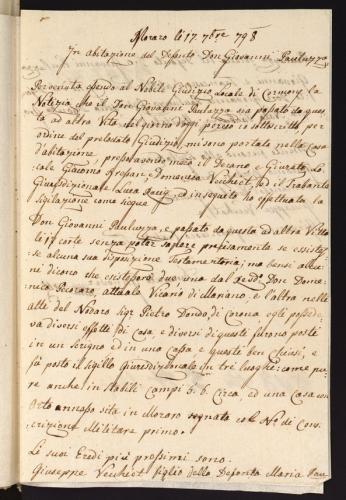 Moraro li 17 7bre 798
In abitazione del Defonto Don Giovanni Pauluzzo
Pervenuta essendo al Nobile Giudizio Locale di Cormons la
Notizia che il Don Giovanni Pauluzzo sia passato da ques-
ta ad altra Vita nel giorno d'oggi perciò io sottoscritto per
ordine del prelodato Giudizio, mi sono portato nella Casa
d'abitazione, presso avendo meco il Decano e Giurato Lo-
cale Giacomo e Domenico Veichiet, ed il Trabante
Giurisdizionale Luca ed in seguito ho effettuata la
sigillazione come segue
Don Giovanni Pauluzzo, è passato da questa ad altra Vitta
li 17 corte senza poter sapere precisamente se essista-
se alcuna sua disposizione Testamentaria; ma bensì alcu-
ni dicono che esistessero due una dal Don Dome-
nico Pecoraro, attuale Vicario di Mariano, e l'altra nelle
atte del Nodaro Sigr Pietro Dondo di Corona egli possede-
va diversi effetti di Casa, e diversi di questi furono posti
in un Scrigno ed in una Cassa e questi ben Chiusi, e
fù posto il sigillo Giurisdizionale in tre luoghi: come pu-
re anche in stabili Campi 5. 6. Circa, ed una Casa con
Orto annesso sita in Moraro segnata col No di Cons-
crizione Militare primo.
Le suoi Eredi più prossimi sono.
Giuseppe Veichiet figlio della Defonta Maria Pau